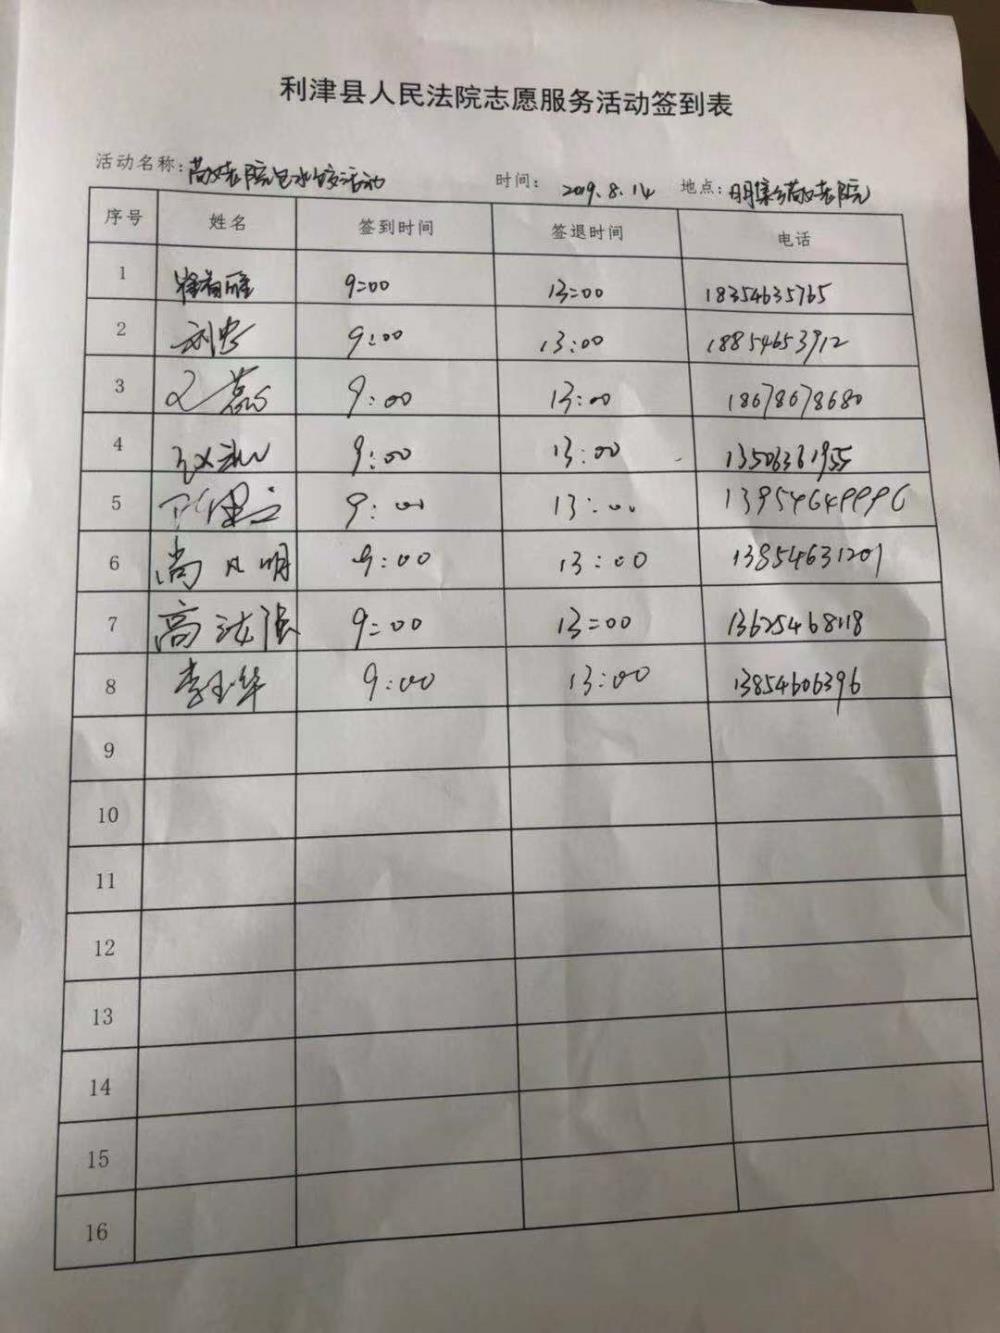 利津县人民法院志愿服务活动签到表
活动名称：敬老院包水饺活动 时间： 2019.8.14 地点：明集乡敬老院
序号 姓名 签到时间 签退时间 电话
1 9:00 13:00 18354635765
2 9:00 13:00 18854653912
3 9:00 13:00 18678678680
4 9:00 13:00 13506361955
5 9:00 13:00 13954649996
6 尚凡明 9:00 13:00 13854631201
7 高法强 9:00 13:00 13625468118
8 李玉华 9:00 13:00 13854606396
9
10
11
12
13
14
15
16